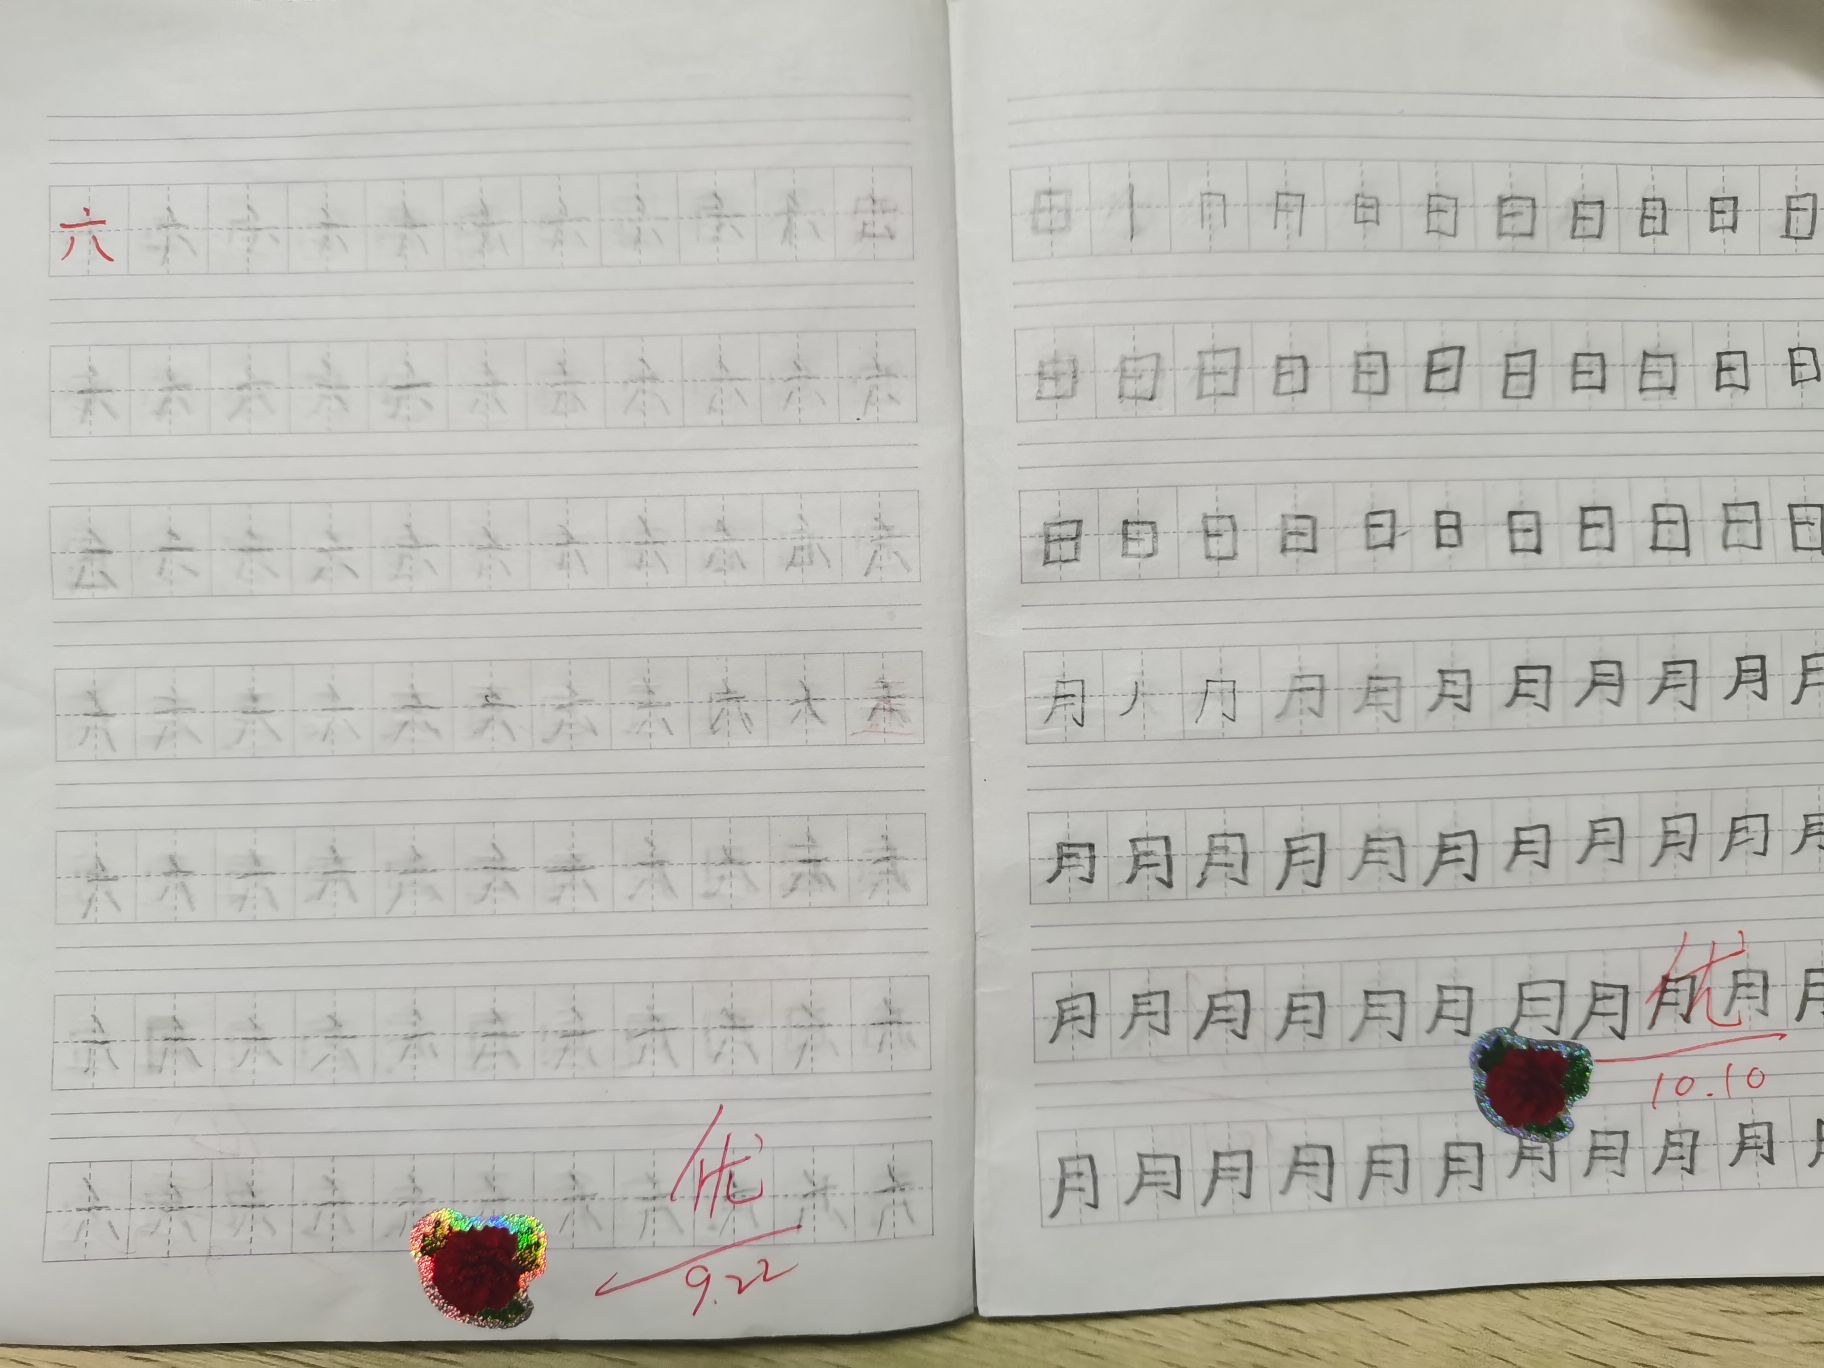 六 六 六 六 六 六 六 六 六 六
六 六 六 六 六 六 六 六 六 六 六
六 六 六 六 六 六 六 六 六 六 六
六 六 六 六 六 六 六 六 六 六 六
六 六 六 六 六 六 六 六 六 六 六
六 六 六 六 六 六 六 六 六 六 六
六 六 六 六 六 六 六 六 六 六
优
9.22
日 丨 冂 月 日 日 日 日 日 日 日
日 日 日 日 日 日 日 日 日 日 日
日 日 日 日 日 日 日 日 日 日 日
月 丿 冂 月 月 月 月 月 月 月 月
月 月 月 月 月 月 月 月 月 月 月
月 月 月 月 月 月 月 月 月 月 月
优
10.10
月 月 月 月 月 月 月 月 月 月 月